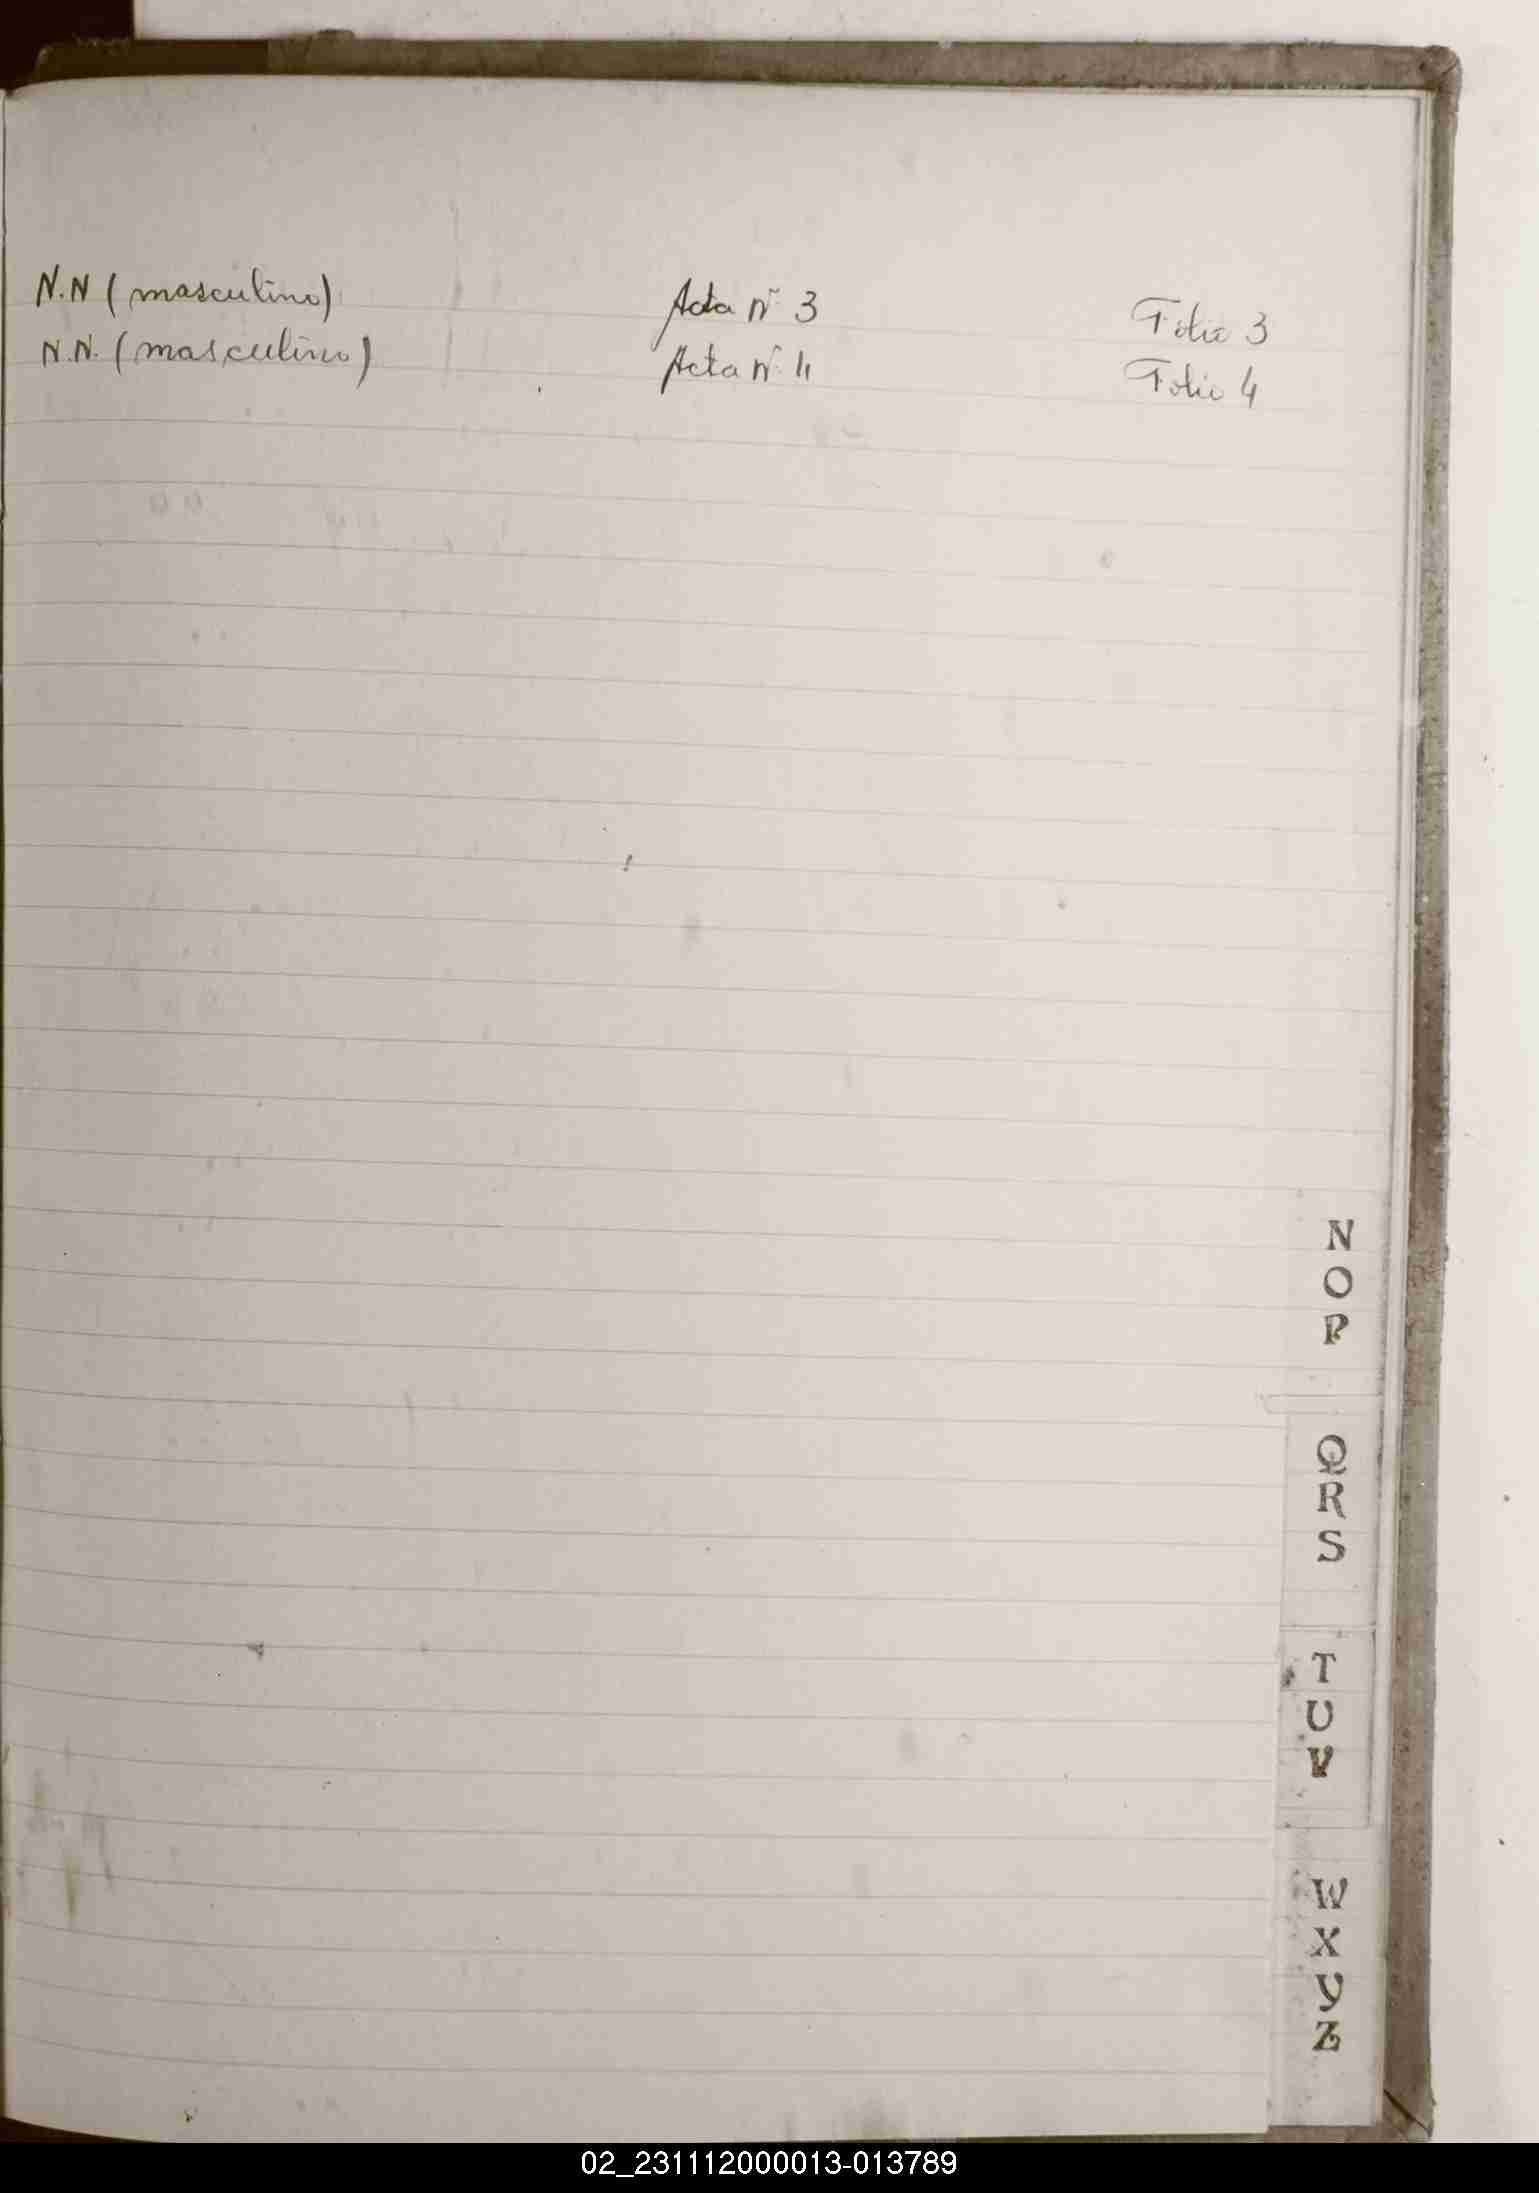 N.N (masculino) Acta Nº 3 Folio 3
N.N. (masculino) Acta Nº 4 Folio 4
N
O
P
Q
R
S
T
U
V
W
X
Y
Z
02_231112000013-013789